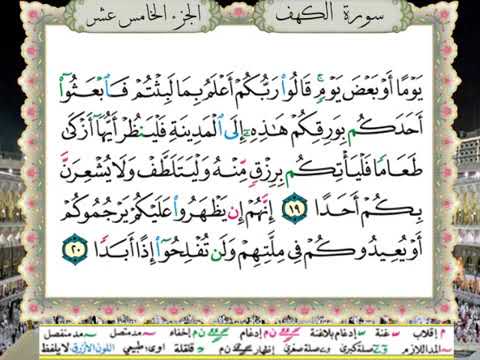 سورة الكهف
الجزء الخامس عشر
يَوْمًا أَوْ بَعْضَ يَوْمٍ ۚ قَالُوا۟ رَبُّكُمْ أَعْلَمُ بِمَا لَبِثْتُمْ فَٱبْعَثُوٓا۟
أَحَدَكُم بِوَرِقِكُمْ هَـٰذِهِۦٓ إِلَى ٱلْمَدِينَةِ فَلْيَنظُرْ أَيُّهَآ أَزْكَىٰ
طَعَامًا فَلْيَأْتِكُم بِرِزْقٍ مِّنْهُ وَلْيَتَلَطَّفْ وَلَا يُشْعِرَنَّ
بِكُمْ أَحَدًا ١٩ إِنَّهُمْ إِن يَظْهَرُوا۟ عَلَيْكُمْ يَرْجُمُوكُمْ
أَوْ يُعِيدُوكُمْ فِى مِلَّتِهِمْ وَلَن تُفْلِحُوٓا۟ إِذًا أَبَدًا ٢٠
م إقلاب غنة إدغام بلاغنة إدغام إخفاء مد متصل مد منفصل
المد اللازم صلة كبرى صلة صغرى إظهار قلقلة طبيعي اللون الأزرق لا يلفظ